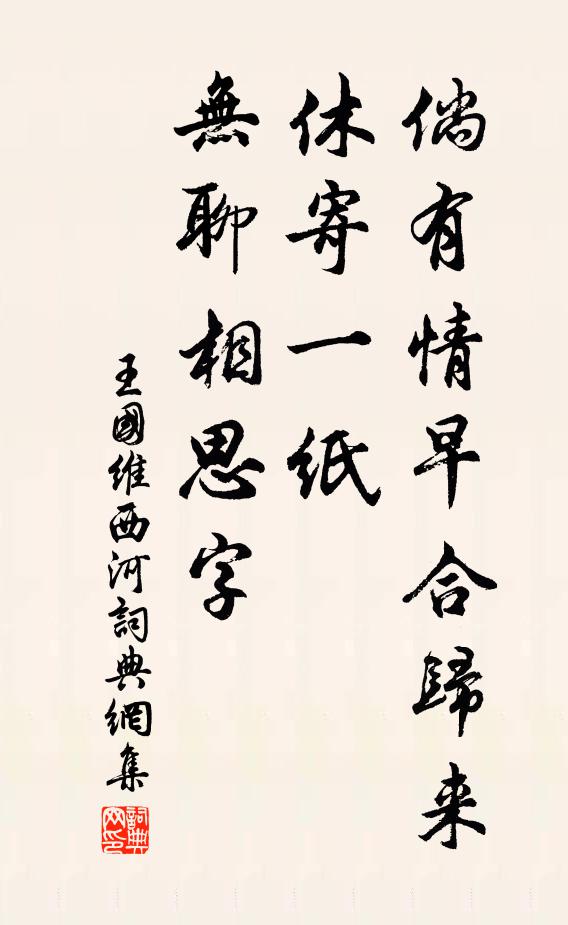 倘有情早合歸来
休寄一紙
無聊相思字
王國維西河詞典網集
詞典網印